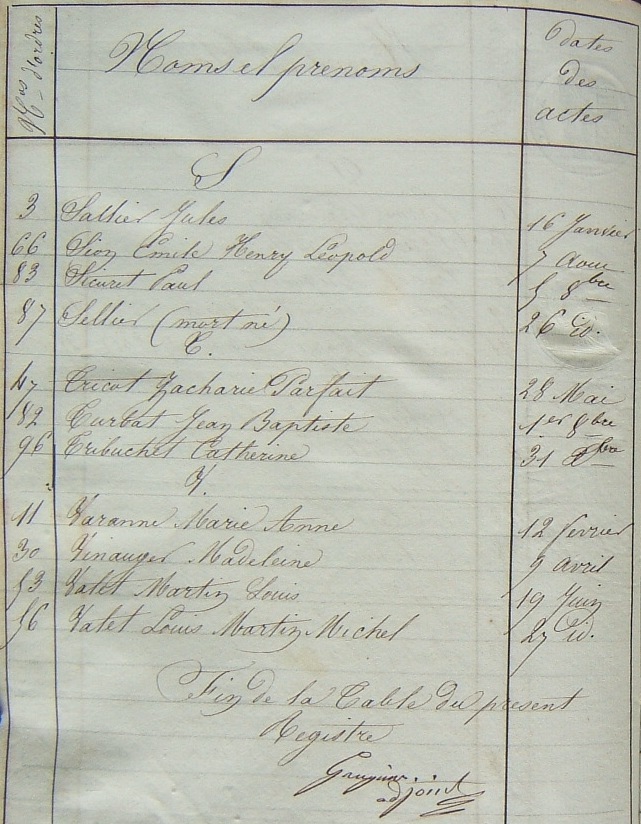 Nos d'ordres Noms et prenoms Dates des actes
S
3 Sallier Jules 16 Janvier
66 Sion Emile Henry Léopold 7 Aout
83 Sicuret Paul 5 8bre
87 Sellier (mort né) 26 id.
T.
47 Tricot Zacharie Parfait 28 Mai
82 Turbat Jean Baptiste 1er 8bre
96 Tribuchet Catherine 31 Xbre
V.
11 Varanne Marie Anne 12 fevrier
30 Vinauger Madeleine 9 avril
53 Valet Martin Louis 19 Juin
56 Valet Louis Martin Michel 27 id.
Fin de la Table du present
Registre
adjoint